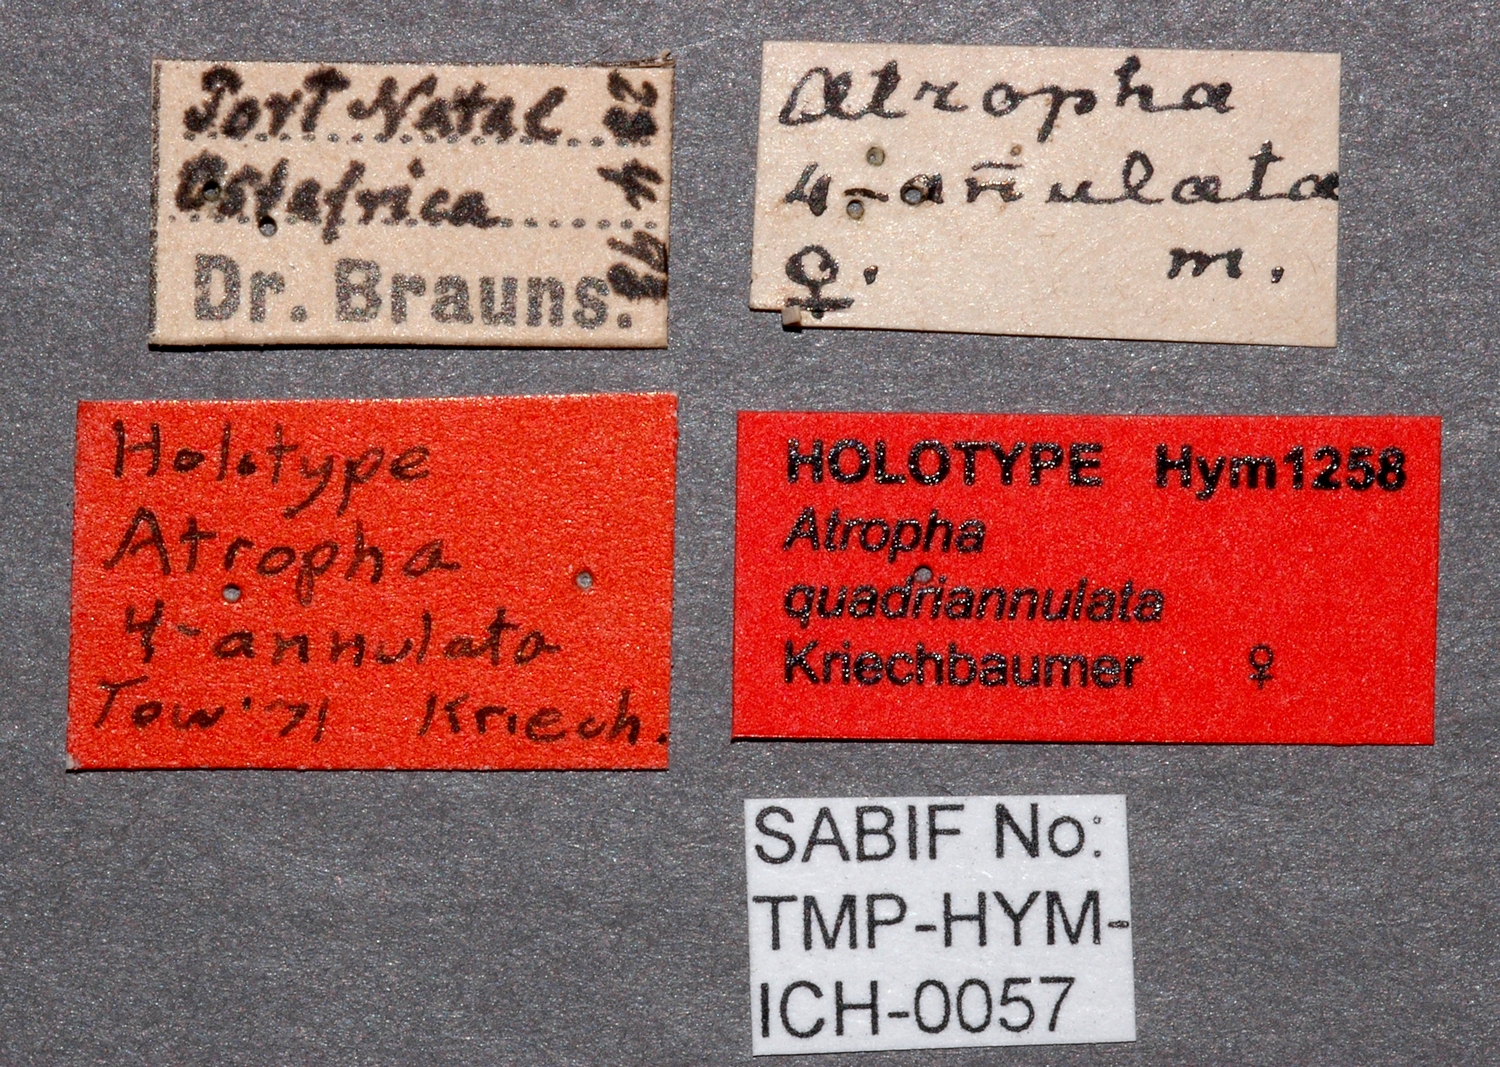 Port Natal
Ostafrica
Dr. Brauns.
Atropha
4-añulata
♀. m.
Holotype
Atropha
4-annulata
Tow'71 Kriech.
HOLOTYPE Hym1258
Atropha
quadriannulata
Kriechbaumer ♀
SABIF No:
TMP-HYM-
ICH-0057